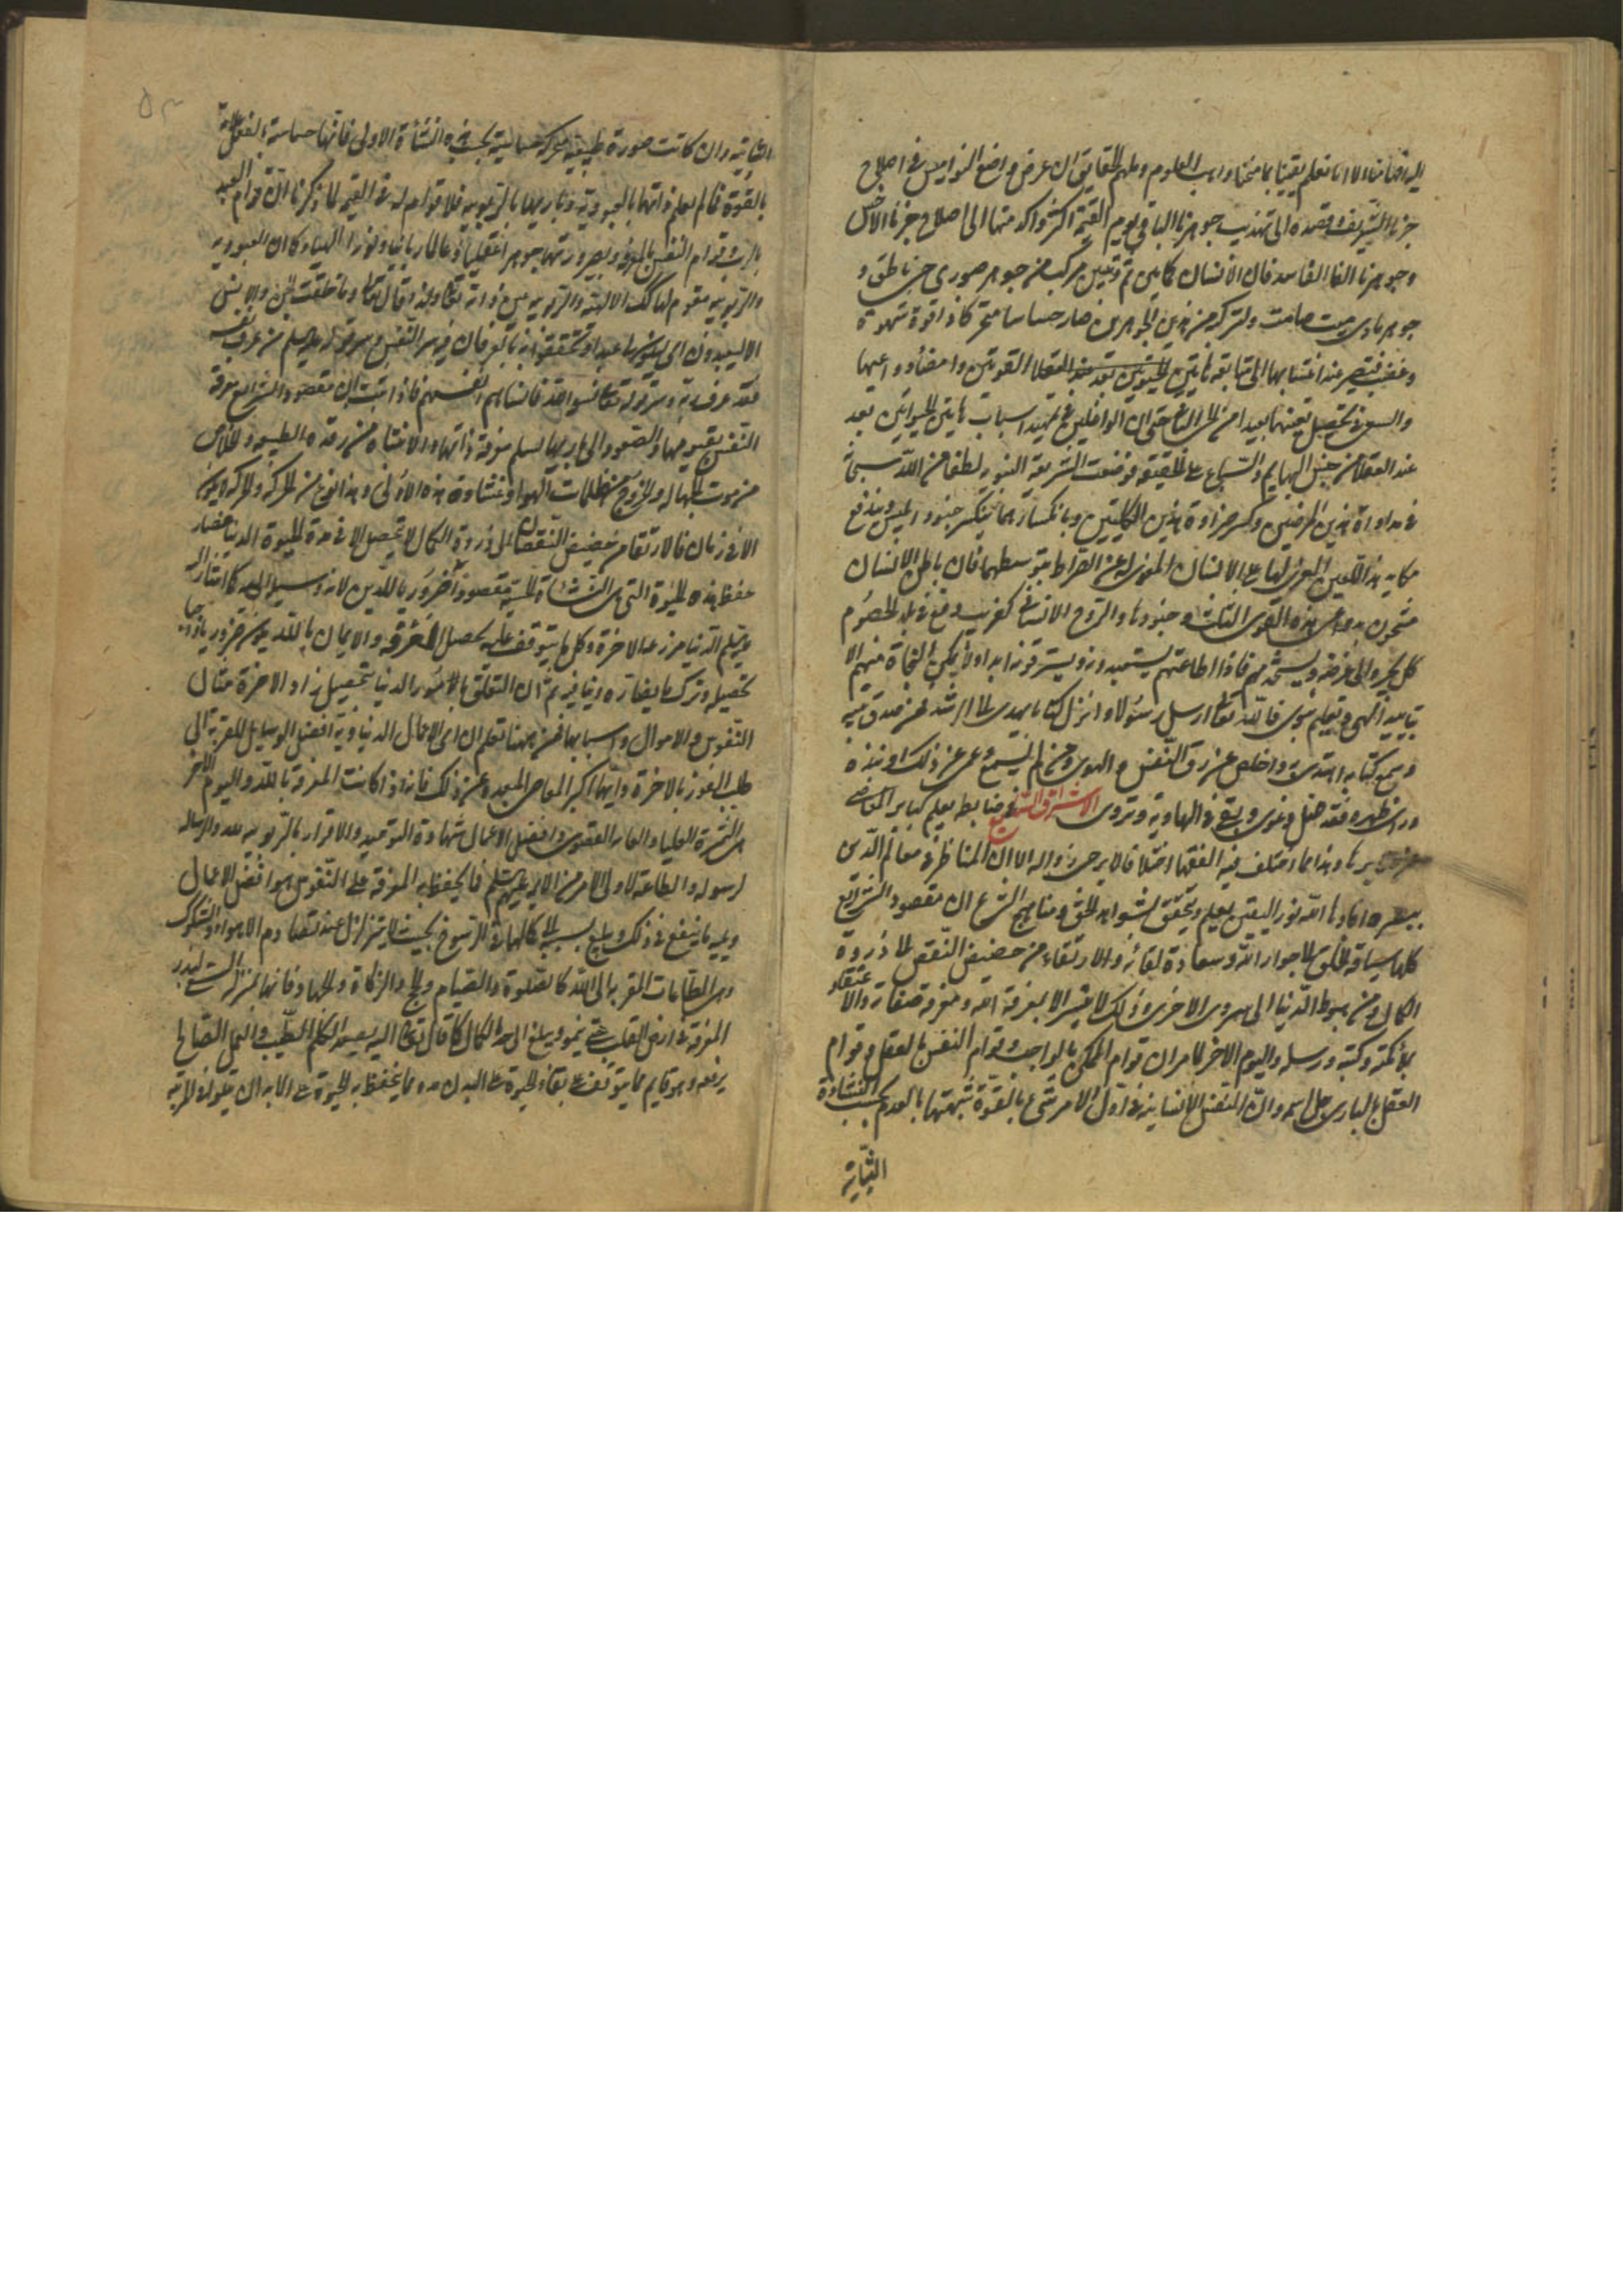 اليه اقضانا ولانا نعلم يقينا بما منحنا واهب العلوم وملهم الحقايق ان غرض واضع النواميس في اصلاح
جزئنا الشريف وقصده الى تهذيب جوهرنا الباقي يوم القيمة اكثر واكد منها الى اصلاح جزئنا الاخس
وجوهرنا الفاسد فان الانسان كما تبين مركب من جوهر صوري حي ناطق و
جوهر مادي ميت صامت ولتركبه من هذين الجوهرين صار حساسا متحركا ذا قوة شهوة
وغضب فيقصر عند اغتنائها الى متابعة هاتين القوتين وامضاء دواعيها
والسعي في تحصيل بغيتها بعيدا من الحق ان الواغلين في تمهيد اسباب هاتين الحيوانيتين يعد
عند العقلا من جنس البهايم والسباع على الحقيقة فوضعت الشريعة لطفا من الله سبحانه
في مداواة هذين المرضين وكسر ضراوة هذين الكلبين وبانكسارهما ينكسر جنود ابليس ويندفع
مكايد هذا اللعين على الانسان عن الصراط بتوسطهما فان باطن الانسان
مشحون بدواعي هذه القوى الثلث وجنودها والروح الانساني كغريب وقع في بلد الخصوم
كل يجره الى غرضه ويستخدمهم فاذا اطاعتهم يستعبدونه ويسترقونه ابدا ولا يمكن النجاة منهم الا
بتاييد الهي وتعليم نبوي فالله تعالى ارسل رسولا وانزل كتابا يهدي الى الرشد فمن صدق نبيه
وسمع كتابه اهتدى واخلص من رق النفس والهوى ومن لم يسمع وعمي عن ذلك او نبذه
وراء ظهره فقد ضل وغوى ووقع في الهاوية وتردى الاشراق التاسع في ضابط يعلم كباير المعاصي
من غيرها وهذا مما اختلف فيه الفقها اختلافا لا يرجى زواله الا ان الناظر في معالم الدين
ببصيرة افادها الله نور اليقين يعلم ويتحقق بشواهد الحق ومناهج الشرع ان مقصود الشرايع
كلها سياقة الخلق الى جوار الله وسعادة لقائه والارتقاء من حضيض النقص الى ذروة
الكمال ومن هبوط الدنيا الى الاخرى وذلك لا يتيسر الا بمعرفة الله ومعرفة صفاته والاعتقاد
بملائكته وكتبه ورسله واليوم الاخر لما مر ان قوام الممكن بالواجب وقوام النفس بالعقل وقوام
العقل بالباري جل اسمه وان النفس الانسانية في اول الامر شيء بالقوة شبيهتها بالعدم بحسب النشاءة
الثانية
الثانية وان كانت صورة طبيعية بحسب هذه النشأة الاولى فانها حساسة بالفعل علامة
بالقوة فما لم يعلم ذاتها بالعبودية وباريها بالربوبية فلا قوام له في القيمة لما ذكرنا ان قوام العبد
بالرب وقوام النفس بالمعرفة وبصيرورتها جوهرا عقليا وعالما ربانيا ونورا الهيا وكان العبودية
والربوبية مقوم لها كذلك الالهية والربوبية عين ذاته تعالى ولهذا قال تعالى وما خلقت الجن والانس
الا ليعبدون اي ليكونوا عبيدا وتحقق هذا بالعرفان من عرف نفسه
فقد عرف ربه وسر قوله تعالى نسوا الله فانساهم انفسهم فاذا ثبت ان مقصود الشرايع معرفة
النفس بقيومها والصعود الى باريها بسلم معرفة ذاتها والانتباه من رقدة الطبيعة والخلاص
من موت الجهالة والخروج من ظلمات الهوا وغشاوة هذه الاولى وهذا نوع من الحركة والحركة لا يكون
الا في زمان فالارتقا من حضيض النقصان الى ذروة الكمال لا يحصل الا في مدة الحيوة الدنيا فصار
حفظ هذه الحيوة التي هي النشأة الحسية مقصودا ضروريا للدين لانه وسيلة اليه كما اشار اليه
عليه السلم الدنيا مزرعة الاخرة وكل ما يتوقف عليه تحصيل المعرفة والايمان بالله يكون ضروريا واجبا
تحصيله وترك ما يضاده وينافيه ثم ان المتعلق بالامور الدنيا بتحصيل زاد الاخرة شيئان
النفوس والاموال واسبابها فمن هيهنا تعلم ان اي الاعمال الدنياوية افضل الوسايل المقربة الى
طلب الفوز بالاخرة وايها اكبر المعاصي المبعدة عن ذلك فانه اذا كانت المعرفة بالله واليوم الاخر
هي الثمرة العليا والغاية القصوى وافضل الاعمال شهادة التوحيد والاقرار بالربوبية لله والرسالة
لرسوله والطاعة لاولي الامر من عليهم السلم فما يحفظ به المعرفة على النفوس هو افضل الاعمال
ويليه ما ينفع في ذلك كمالها في الرسوخ بحيث لا يتزلزل عند تصادم الاهواء والشكوك
وهي الطاعات المقربة الى الله كالصلوة والصيام والحج والزكاة والجهاد فانها بمنزلة السقي لبذر
المعرفة في ارض القلب حتى ينمو ويبلغ الى الكمال كما قال تعالى اليه يصعد الكلم الطيب والعمل الصالح
يرفعه وهو قايم مما يتوقف على بقاء الحيوة على البدن مما يحفظ به الحيوة على الابدان يتلوه في المرتبة